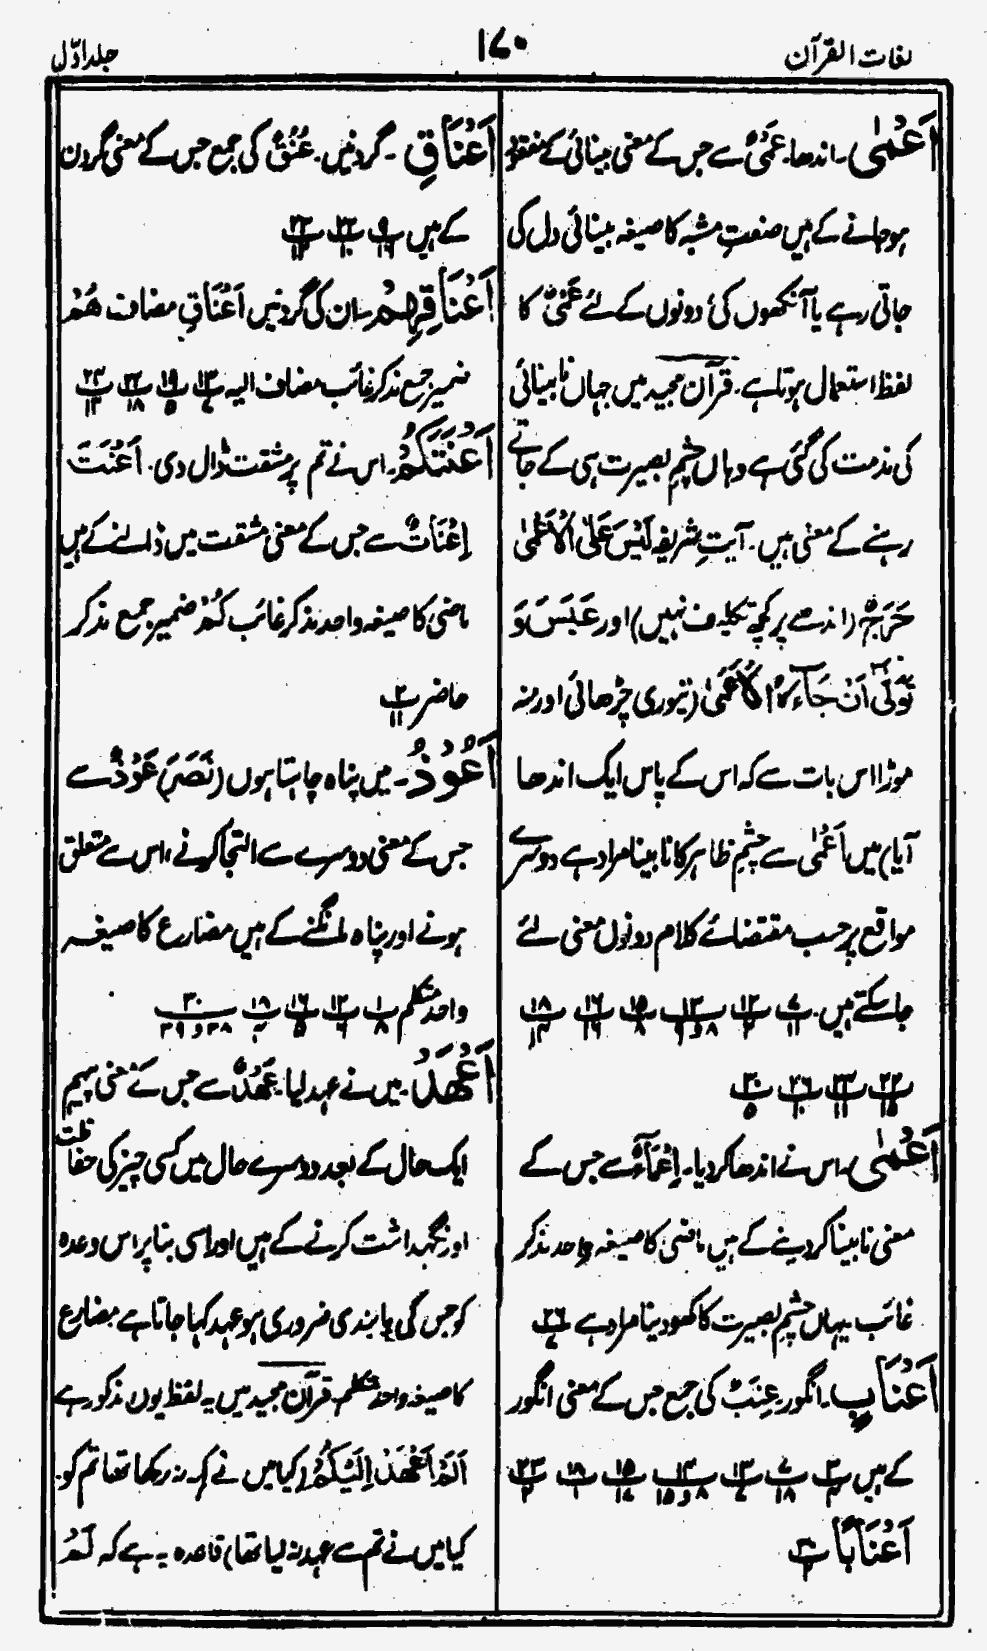 لغات القرآن
۱۷۰
جلد اوّل
اَعْمٰی۔ اندھا۔ عَمًی سے جس کے معنی بینائی کے مفقود
ہو جانے کے ہیں صفتِ مشبہ کا صیغہ بینائی دل کی
جاتی رہے یا آنکھوں کی دونوں کے لئے عَمًی کا
لفظ استعمال ہوتا ہے۔ قرآن مجید میں جہاں نابینائی
کی مذمت کی گئی ہے وہاں چشمِ بصیرت ہی کے جاتے
رہنے کے معنی ہیں۔ آیتِ شریفہ لَیْسَ عَلَی الْاَعْمٰی
حَرَجٌ (اندھے پر کچھ تکلیف نہیں) اور عَبَسَ وَ
تَوَلّٰی اَنْ جَآءَہُ الْاَعْمٰی (تیوری چڑھائی اور منہ
موڑا اس بات سے کہ اس کے پاس ایک اندھا
آیا) میں اَعْمٰی سے چشمِ ظاہر کا نابینا مراد ہے دوسرے
مواقع پر حسب مقتضائے کلام دونوں معنی لئے
جا سکتے ہیں۔ پ۷ ۱۱ پ۱۲ ۲ پ۱۳ ۸ و ۹ پ۱۵ ۸ پ۱۶ ۱۶ پ۱۸ ۱۴
پ۲۲ ۱۵ پ۲۳ ۱۱ پ۲۶ ۱۰ پ۳۰ ۵
اَعْمٰی۔ اس نے اندھا کر دیا۔ اِعْمَآءٌ سے جس کے
معنی نابینا کر دینے کے ہیں ماضی کا صیغہ واحد مذکر
غائب یہاں چشم بصیرت کا کھو دینا مراد ہے پ۲۶ ۷
اَعْنَابٍ۔ انگور۔ عِنَبٌ کی جمع جس کے معنی انگور
کے ہیں پ۳ ۴ پ۷ ۱۸ پ۱۳ ۷ پ۱۴ ۸ و ۱۵ پ۱۵ ۱۷ پ۱۸ ۱ پ۲۳ ۲
اَعْنَابًا پ۳۰
اَعْنَاقِ۔ گردنیں۔ عُنُقٌ کی جمع جس کے معنی گردن
کے ہیں پ۹ ۱۶ پ۲۲ ۱۰ پ۲۳ ۱۲
اَعْنَاقِہِمْ۔ ان کی گردنیں اَعْنَاقِ مضاف ھُمْ
ضمیر جمع مذکر غائب مضاف الیہ پ۱۳ ۷ پ۱۹ ۵ پ۲۲ ۱۸ پ۲۴ ۱۳
اَعْنَتَکُمْ۔ اس نے تم پر مشقت ڈال دی۔ اَعْنَتَ
اِعْنَاتٌ سے جس کے معنی مشقت میں ڈالنے کے ہیں
ماضی کا صیغہ واحد مذکر غائب کُمْ ضمیر جمع مذکر
حاضر پ۲ ۱۱
اَعُوْذُ۔ میں پناہ چاہتا ہوں (نَصَرَ) عَوْذٌ سے
جس کے معنی دوسرے سے التجا کرنے، اس سے متعلق
ہونے اور پناہ مانگنے کے ہیں مضارع کا صیغہ
واحد متکلم پ۱ ۸ پ۱۲ ۴ پ۱۶ ۵ پ۱۸ ۶ پ۳۰ ۳۸ و ۳۹
اَعْھَدْ۔ میں نے عہد لیا۔ عَھْدٌ سے جس کے معنی پیہم
ایک حال کے بعد دوسرے حال میں کسی چیز کی حفاظت
اور نگہداشت کرنے کے ہیں اور اسی بنا پر اس وعدہ
کو جس کی پابندی ضروری ہو عہد کہا جاتا ہے مضارع
کا صیغہ واحد متکلم قرآن مجید میں یہ لفظ یوں مذکور ہے
اَلَمْ اَعْھَدْ اِلَیْکُمْ (کیا میں نے کہہ نہ رکھا تھا تم کو۔
کیا میں نے تم سے عہد نہ لیا تھا) قاعدہ یہ ہے کہ لَمْ